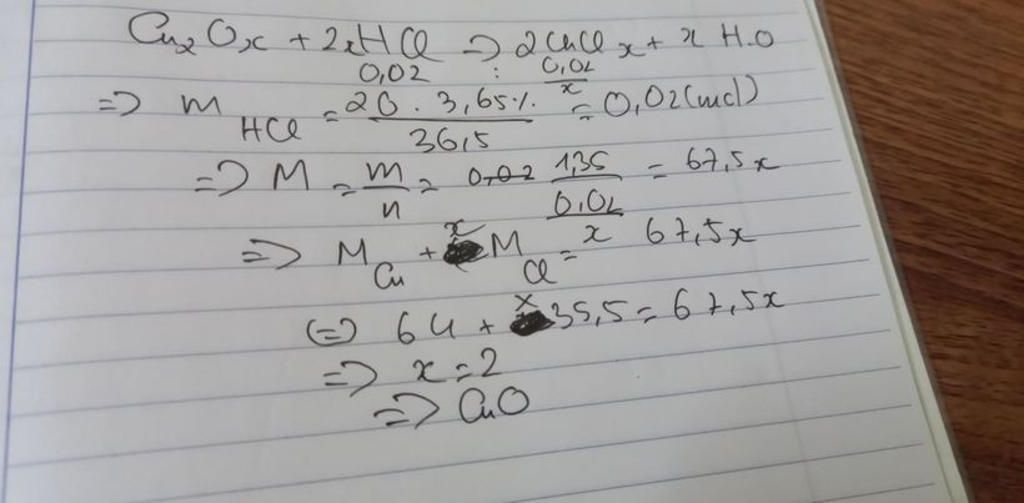 Cu₂Oₓ + 2xHCl => 2CuClₓ + x H₂O
0,02 : 0,02/x
=> m HCl = 20 . 3,65% / 36,5 = 0,02 (mol)
=> M = m/n = 0,02 1,35 / (0,02/x) = 67,5x
=> M Cu + x M Cl = 67,5x
<=> 64 + x 35,5 = 67,5x
=> x = 2
=> CuO